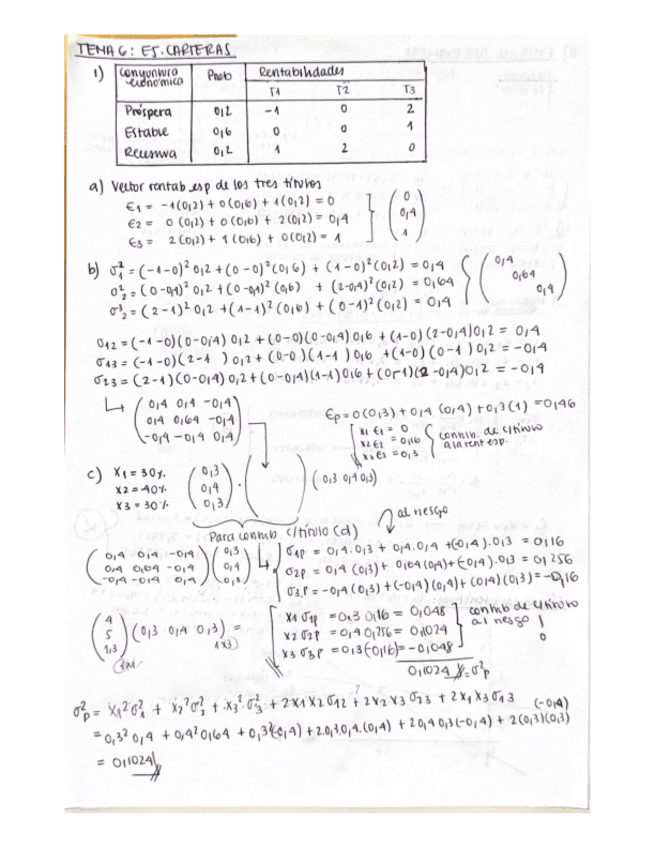 TEMA 6: EJ. CARTERAS
1)
Coyuntura económica Prob Rentabilidades
T1 T2 T3
Próspera 0,2 -1 0 2
Estable 0,6 0 0 1
Recesiva 0,2 1 2 0
a) Vector rentab esp de los tres títulos
E1 = -1(0,2) + 0(0,6) + 1(0,2) = 0
E2 = 0(0,2) + 0(0,6) + 2(0,2) = 0,4
E3 = 2(0,2) + 1(0,6) + 0(0,2) = 1
0
0,4
1
b) σ²1 = (-1-0)² 0,2 + (0-0)² (0,6) + (1-0)² (0,2) = 0,4
σ²2 = (0-0,4)² 0,2 + (0-0,4)² (0,6) + (2-0,4)² (0,2) = 0,64
σ³2 = (2-1)² 0,2 + (1-1)² (0,6) + (0-1)² (0,2) = 0,4
0,4
0,64
0,4
σ12 = (-1-0)(0-0,4) 0,2 + (0-0)(0-0,4) 0,6 + (1-0)(2-0,4) 0,2 = 0,4
σ13 = (-1-0)(2-1) 0,2 + (0-0)(1-1) 0,6 + (1-0)(0-1) 0,2 = -0,4
σ23 = (2-1)(0-0,4) 0,2 + (0-0,4)(1-1) 0,6 + (0-1)(2-0,4) 0,2 = -0,4
0,4 0,4 -0,4
0,4 0,64 -0,4
-0,4 -0,4 0,4
Ep = 0(0,3) + 0,4(0,4) + 0,3(1) = 0,46
x1 E1 = 0
x2 E2 = 0,16
x3 E3 = 0,3
contrib. de c/título
a la rent esp.
c) X1 = 30%
X2 = 40%
X3 = 30%
0,3
0,4
0,3
(0,3 0,4 0,3)
Para contrib c/título (d)
al riesgo
0,4 0,4 -0,4
0,4 0,64 -0,4
-0,4 -0,4 0,4
0,3
0,4
0,3
σ1p = 0,4·0,3 + 0,4·0,4 + (-0,4)·0,3 = 0,16
σ2p = 0,4(0,3) + 0,64(0,4) + (-0,4)·0,3 = 0,256
σ3p = -0,4(0,3) + (-0,4)(0,4) + (0,4)(0,3) = -0,16
(0,3 0,4 0,3) =
1x3
x1 σ1p = 0,3 0,16 = 0,048
x2 σ2p = 0,4 0,256 = 0,1024
x3 σ3p = 0,3(-0,16) = -0,048
contrib de c/título
al riesgo
0,1024 = σ²p
σ²p = x1² σ²1 + x2² σ²2 + x3² σ²3 + 2x1x2 σ12 + 2x2x3 σ23 + 2x1x3 σ13
(-0,4)
= 0,3² 0,4 + 0,4² 0,64 + 0,3² (0,4) + 2·0,3·0,4·(0,4) + 2 0,4 0,3 (-0,4) + 2(0,3)(0,3)
= 0,1024